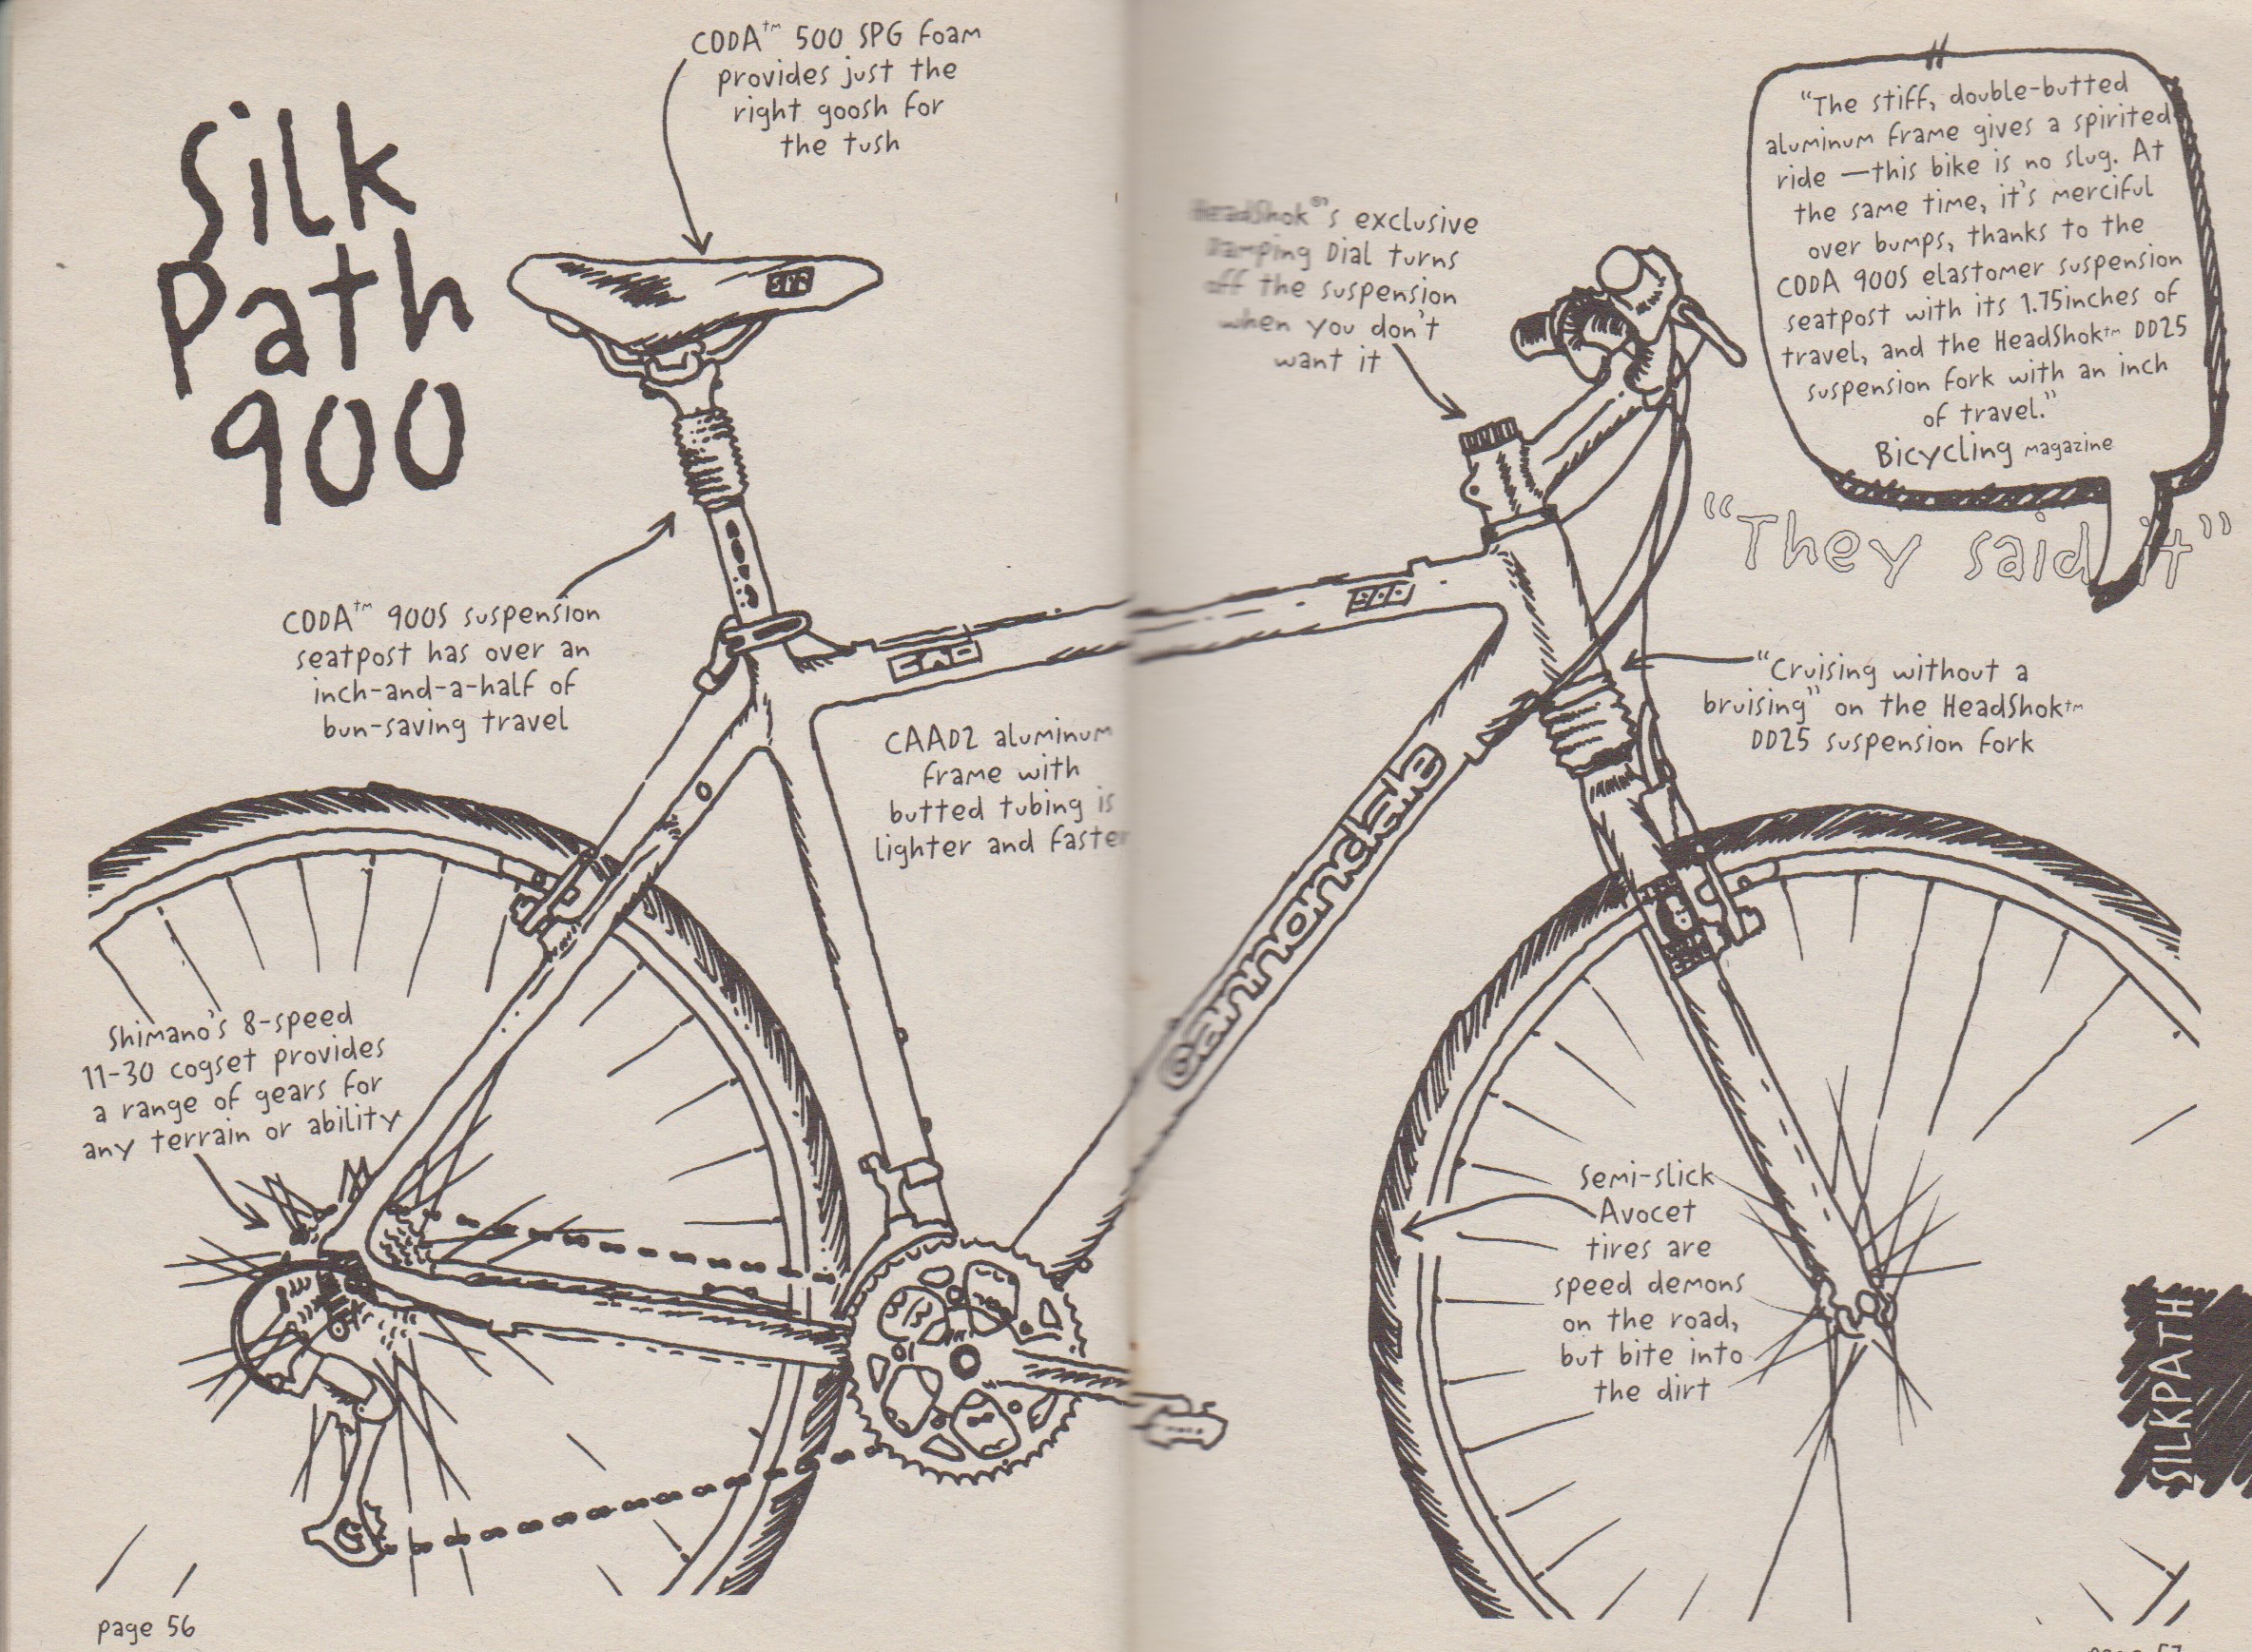 Silk
Path
900
CODA™ 500 SPG foam
provides just the
right goosh for
the tush
CODA™ 900S suspension
seatpost has over an
inch-and-a-half of
bun-saving travel
CAD
CAAD2 aluminum
frame with
butted tubing is
lighter and faster
Shimano's 8-speed
11-30 cogset provides
a range of gears for
any terrain or ability
page 56
HeadShok®'s exclusive
Damping Dial turns
off the suspension
when you don't
want it
"The stiff, double-butted
aluminum frame gives a spirited
ride —this bike is no slug. At
the same time, it's merciful
over bumps, thanks to the
CODA 900S elastomer suspension
seatpost with its 1.75inches of
travel, and the HeadShok™ DD25
suspension fork with an inch
of travel."
Bicycling magazine
"They said it"
"Cruising without a
bruising" on the HeadShok™
DD25 suspension fork
cannondale
Semi-slick
Avocet
tires are
speed demons
on the road,
but bite into
the dirt
SILKPATH
page 57